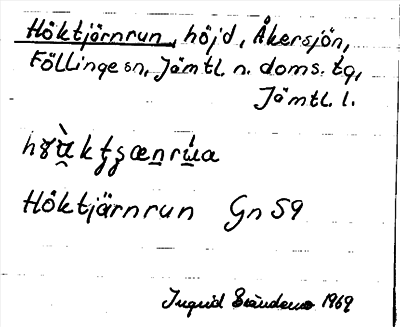 Höktjärnrun, höjd, Åkersjön,
Föllinge sn, Jämtl. n. doms. tg,
Jämtl. l.
Höktjärnrun Gn S9
Ingrid 1969